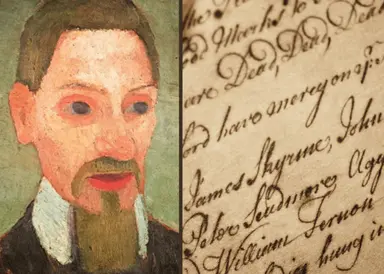 the
Marks to
are Dead, Dead, Dead
ord have mercy on
James Skyrme, John
Peter Scudmore Agg
William Vernon
hung in